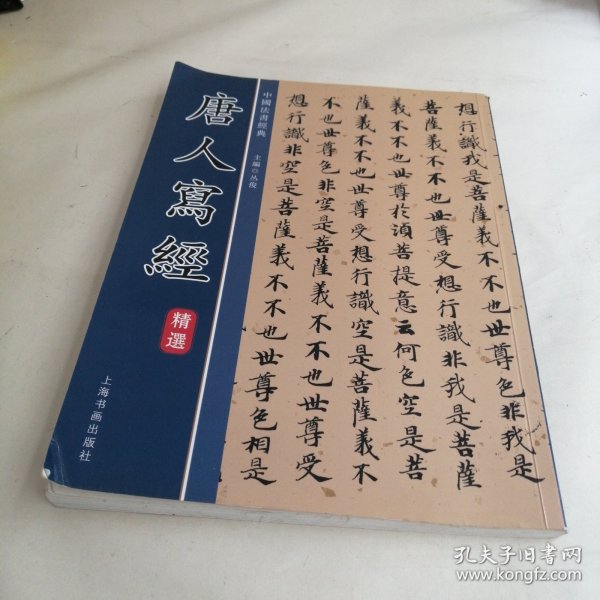 唐人寫經
精選
上海书画出版社
中國法書經典
主編◎丛俊
想行識我是菩薩義不不也世尊色非我是
菩薩義不不也世尊受想行識非我是菩薩
義不不也世尊於湏菩提意云何色空是菩
薩義不不也世尊受想行識空是菩薩義不
不也世尊色非空是菩薩義不不也世尊受
想行識非空是菩薩義不不也世尊色相是
孔夫子旧书网
www.kongfz.com